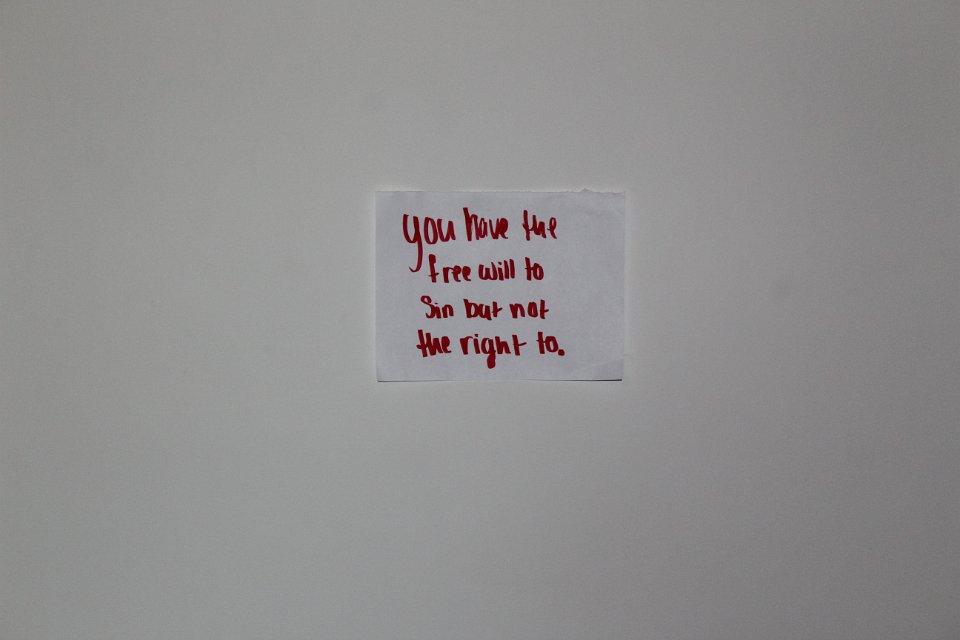 you have the
free will to
Sin but not
the right to.